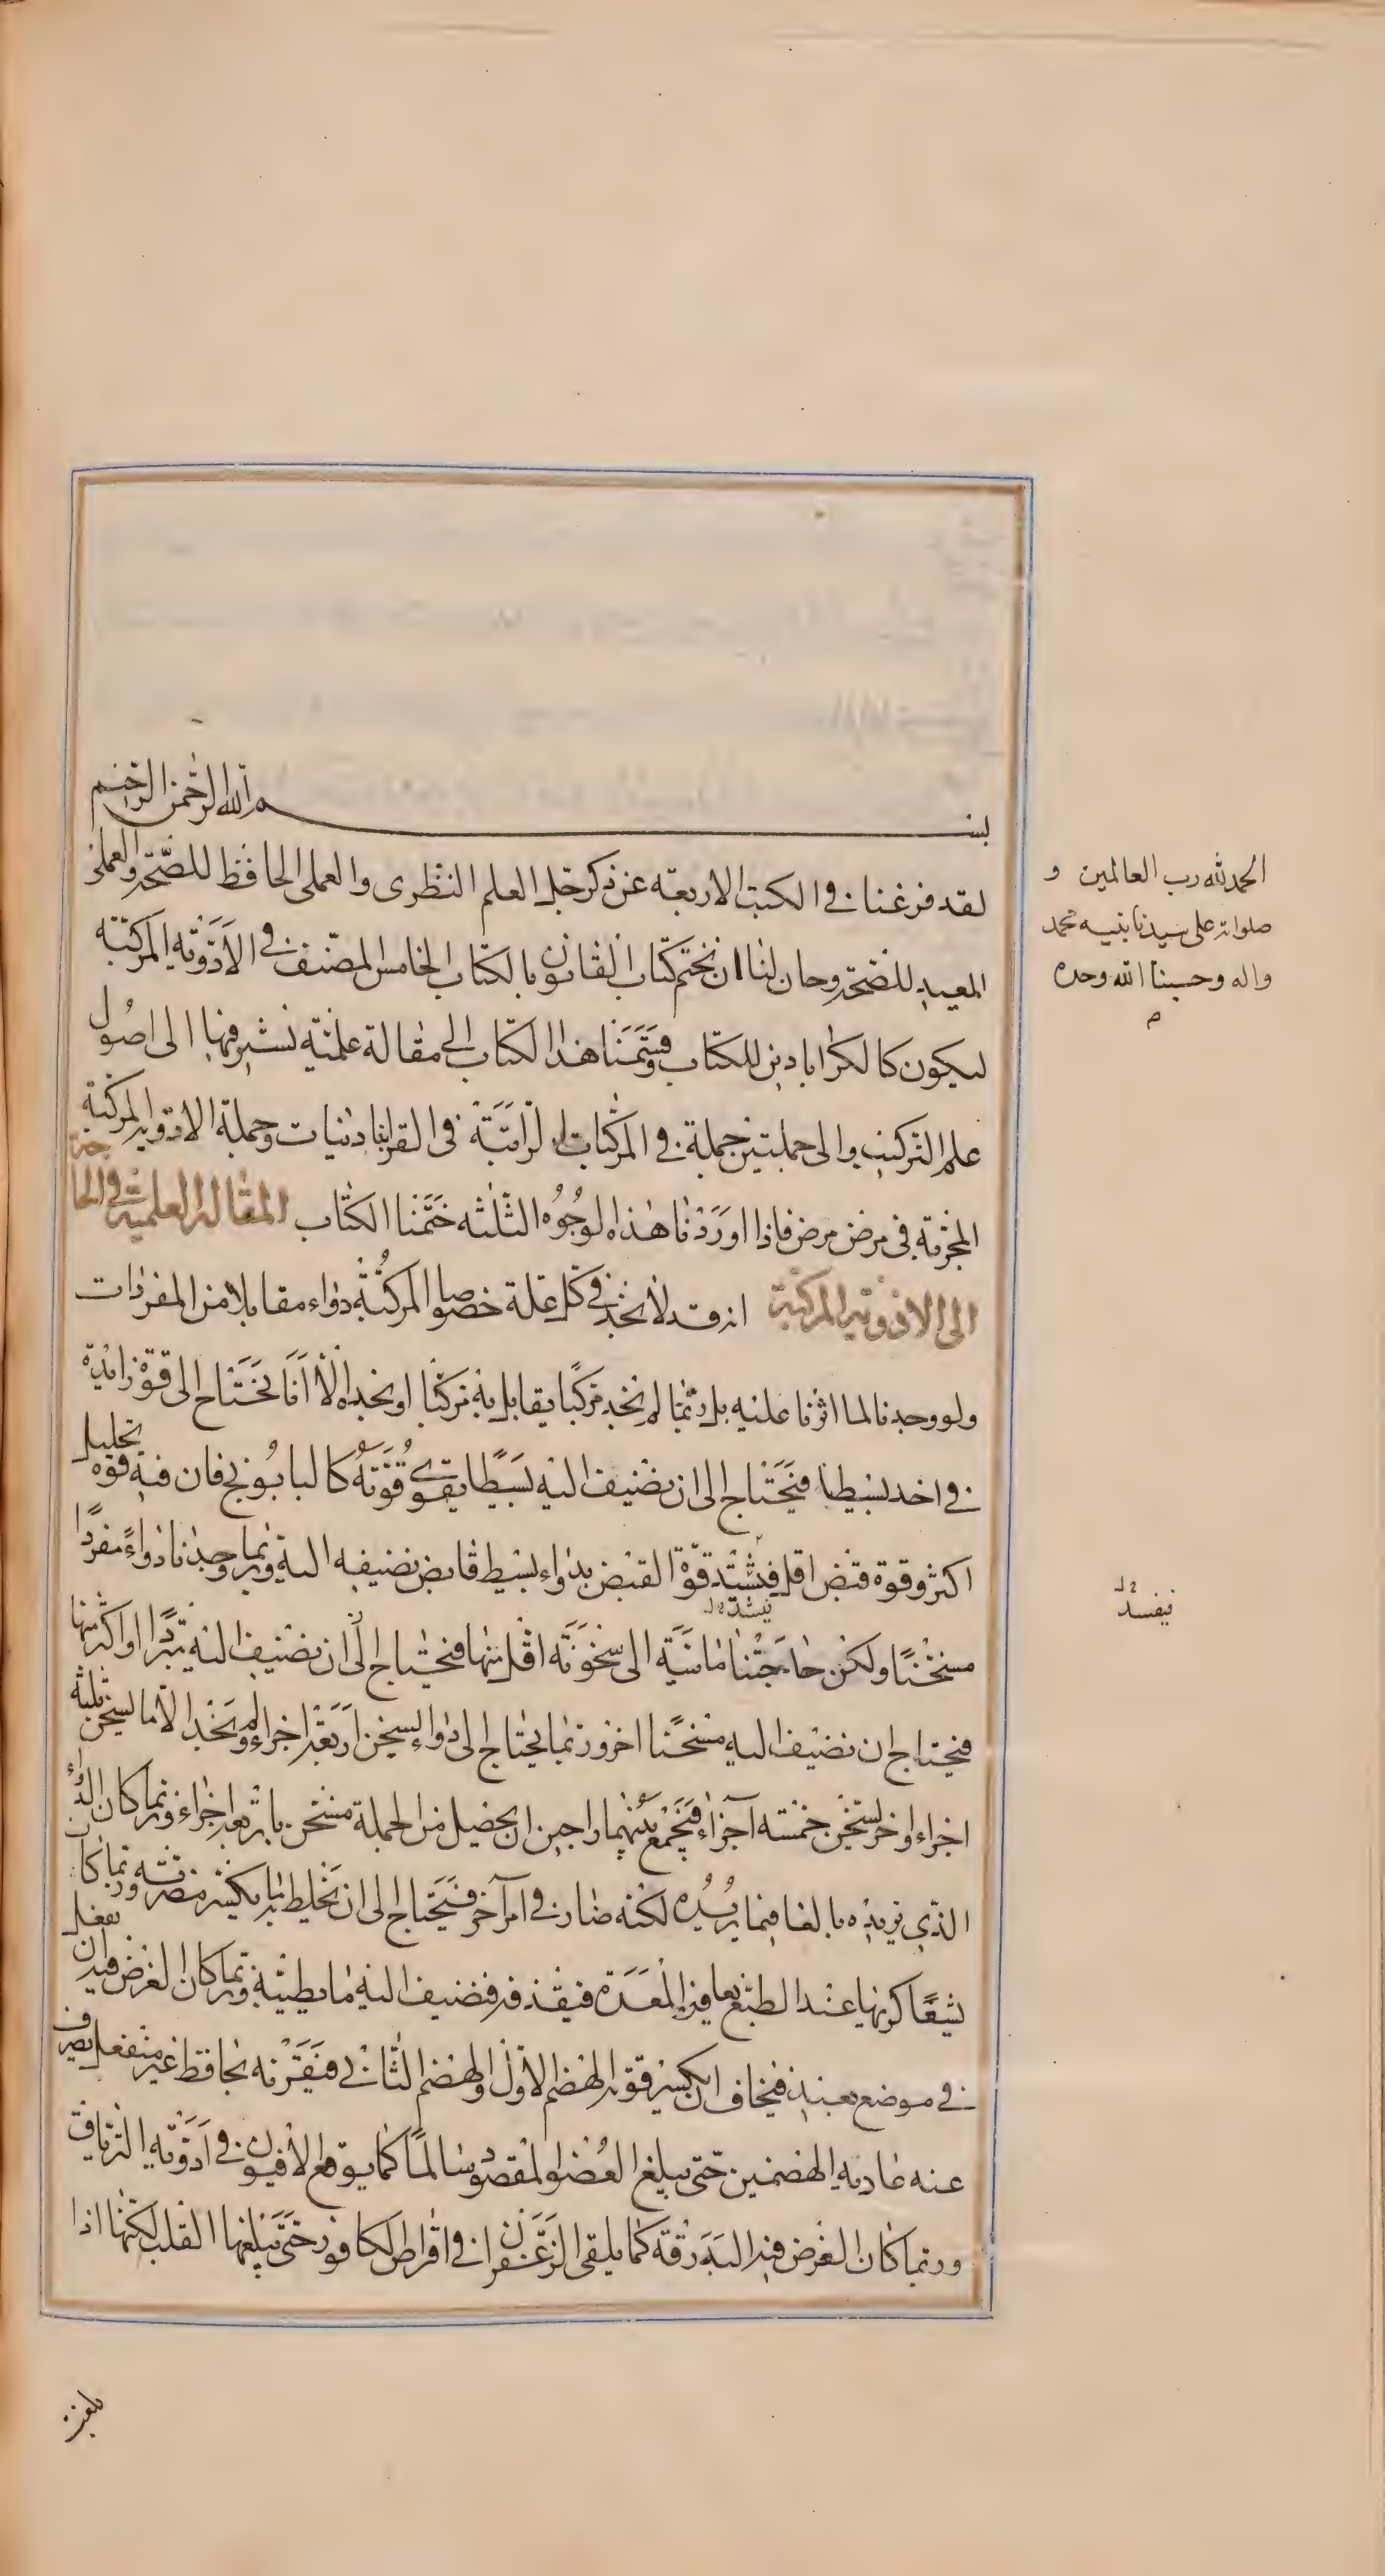 بسم الله الرحمن الرحيم
لقد فرغنا في الكتب الاربعة عن ذكر جل العلم النظرى والعملى الحافظ للصحة والعملى
المعيد للصحة وحان لنا ان نختم كتاب القانون بالكتاب الخامس المصنف في الادوية المركبة
ليكون كالكراباذين للكتاب وقسمنا هذا الكتاب الى مقالة علمية نشير فيها الى اصول
علم التركيب والى جملتين جملة في المركبات الراتبة في القراباذينات وجملة الادوية المركبة
المجربة في مرض مرض فاذا اوردنا هذه الوجوه الثلثه ختمنا الكتاب المقالة العلمية في الحاجة
الى الادوية المركبة انه قد لا نجد في كل علة خصوصا المركبة دواء مقابلا من المفردات
ولو وجدنا لما اثرنا عليه بل ربما لم نجد مركبا يقابل به مركبا او نجده الا انا نحتاج الى قوة زايدة
في احد بسيطيه فنحتاج الى ان نضيف اليه بسيطا يقوى قوته كالبابونج فان فيه قوة تحليل
اكثر وقوة قبض اقل فتشتد قوة القبض بدواء بسيط قابض نضيفه اليه وربما وجدنا دواء مفردا
مسخنا ولكن حاجتنا ماسة الى سخونة اقل منها فنحتاج الى ان نضيف اليه مبردا او اكثر منها
فنحتاج ان نضيف اليه مسخنا اخر وربما نحتاج الى دواء يسخن اربعة اجزاء ولم نجد الا ما يسخن ثلثة
اجزاء واخر يسخن خمسة اجزاء فنجمع بينهما راجين ان يحصل من الجملة مسخن باربعة اجزاء وربما كان الدواء
الذي نريده بالغا فيما نريده لكنه ضار في امر اخر فنحتاج الى ان نخلط به ما يكسر مضرته وربما كان
بشعا كريها عند الطبع يعافه المعدة فيقذفه فنضيف اليه ما يطيبه وربما كان الغرض فيه ان يفعل
في موضع بعيد فيخاف ان يكسر قوته الهضم الاول والهضم الثاني فنقرنه بحافظ غير منفعل يصرف
عنه عادية الهضمين حتى يبلغ العضو المقصود سالما كما يوقع الافيون في ادوية الترياق
وربما كان الغرض فيه البدرقة كما يلقى الزعفران في اقراص الكافور حتى يبلغها القلب لكنها اذا
الحمد لله رب العالمين و
صلواته على سيدنا نبيه محمد
واله وحسبنا الله وحده
م
فيفسد